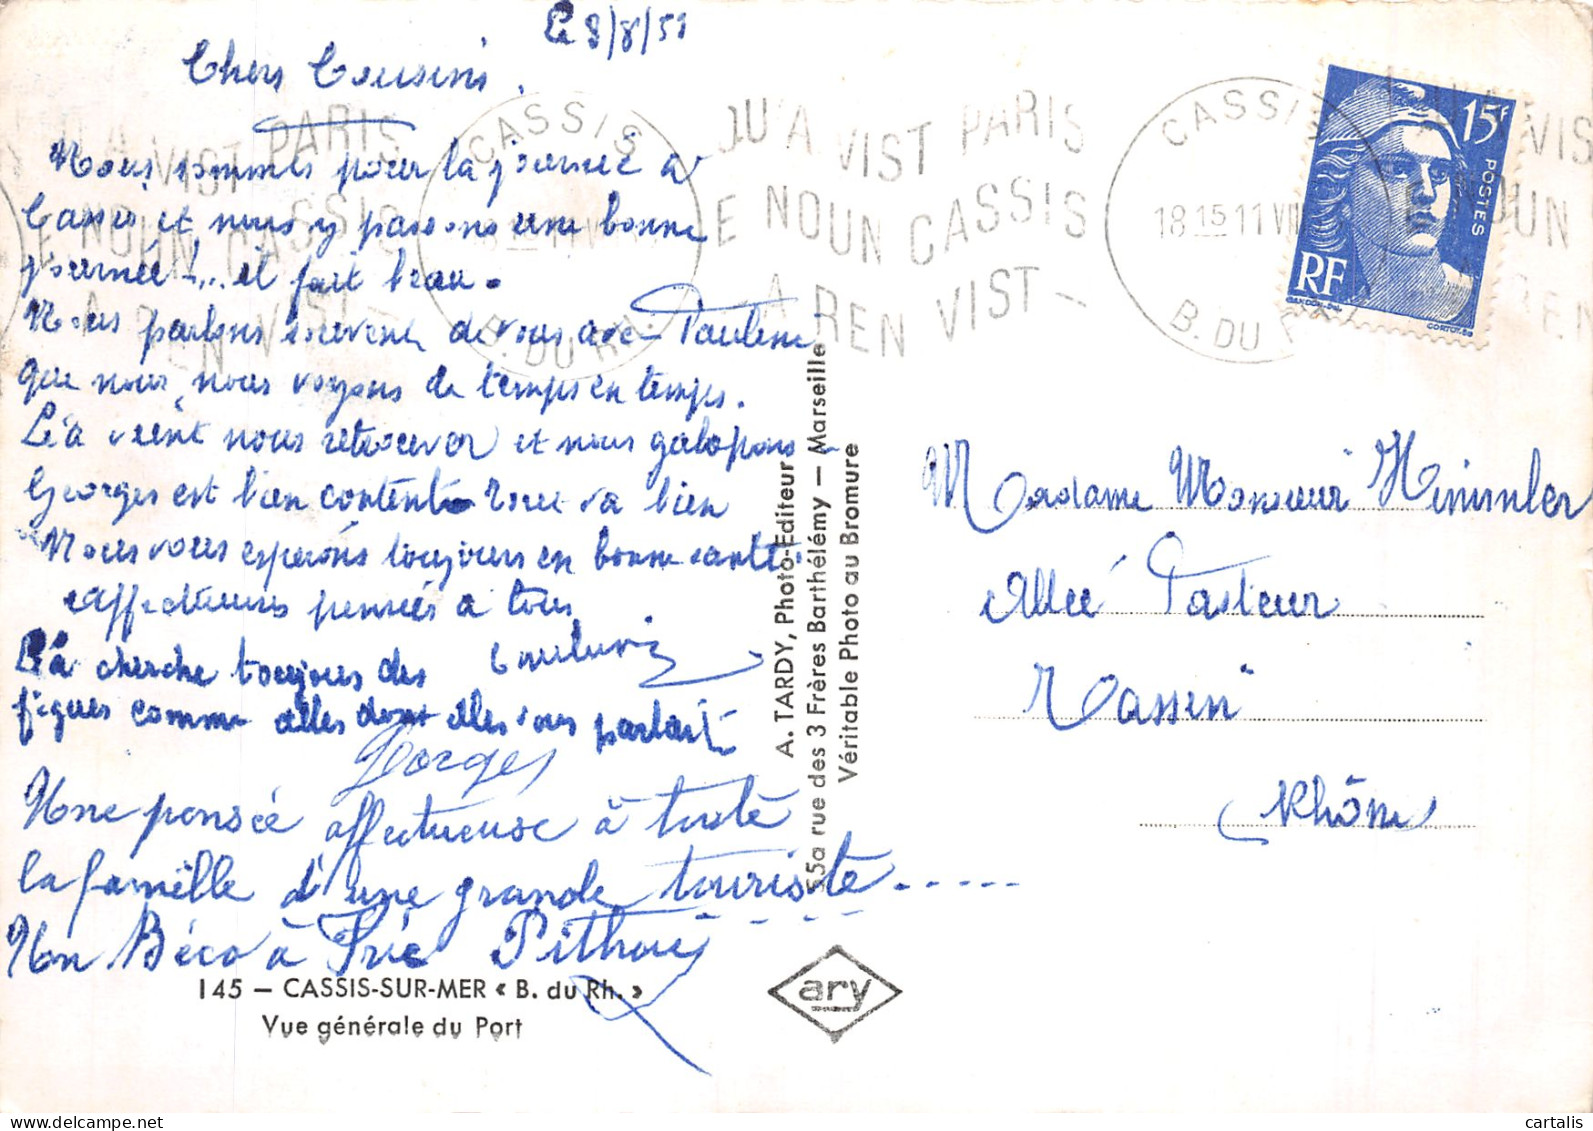 Le 9/8/51
Chers Cousins.
Nous sommes pour la journée a
Cassis et nous y passons une bonne
journée!... il fait beau.
Nous parlons souvent de vous avec Paulene
que nous, nous voyons de temps en temps.
Léa vient nous retrouver et nous galopons
Georges est bien content tout va bien
Nous vous espérons toujours en bonne santé.
affectueuses pensées a tous
Léa cherche toujours des
figues comme elles dont elles vous parlait
Georges
Une pensée affectueuse à toute
la famille d'une grande touriste.....
Un Béco à Pithou
145 — CASSIS-SUR-MER « B. du Rh. »
Vue générale du Port
A. TARDY, Photo-Editeur
55a rue des 3 Frères Barthélémy — Marseille
Véritable Photo au Bromure
ary
CASSIS
B. DU RH.
QU'A VIST PARIS
E NOUN CASSIS
A REN VIST
CASSIS
18 15 11 VII
B. DU R
15F
POSTES
RF
GANDON
CORTOT
Madame Monsieur Himmler
Allée Pasteur
Tassin
Rhône
cartalis
delcampe.net